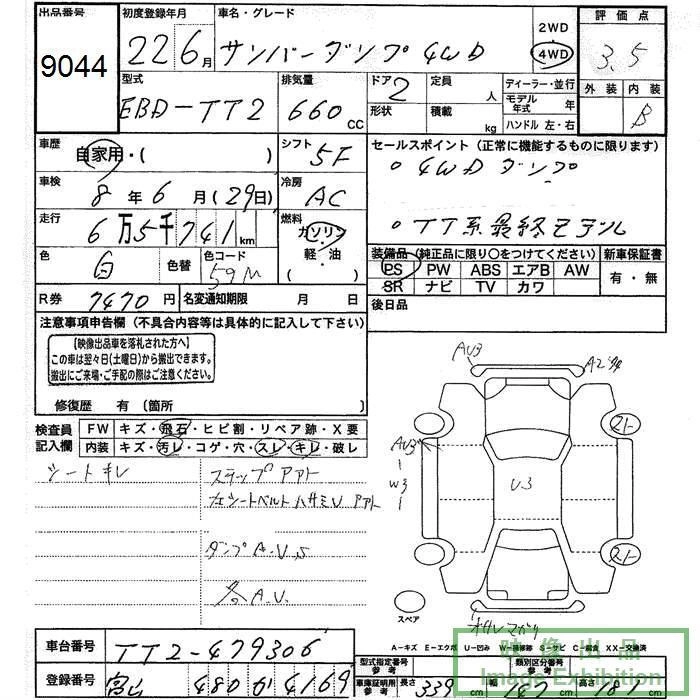 出品番号 9044
初度登録年月 22 6月
車名・グレード サンバーダンプ 4WD
2WD
4WD
評価点 3.5
外装 内装 B
型式 EBD-TT2
排気量 660 CC
ドア 2
形状
定員 人
積載 kg
ディーラー・並行
モデル年式 年
ハンドル 左・右
車歴 自家用・( )
シフト 5F
セールスポイント(正常に機能するものに限ります)
・4WDダンプ
・TT系最終モデル
車検 8年6月(29日)
冷房 AC
走行 6万5千741km
燃料 ガソリン・軽・油( )
色 白
色替
色コード 59M
装備品(純正品に限り○をつけてください)
PS PW ABS エアB AW
SR ナビ TV カワ
新車保証書 有・無
R券 7470円
名変通知期限 月 日
後日品
注意事項申告欄(不具合内容等は具体的に記入して下さい)
【映像出品車を落札された方へ】
この車は翌々日(土曜日)から搬出できます。
搬出にご来場・ご手配の際はご注意ください。
修復歴 有(箇所 )
検査員記入欄
FW キズ・飛石・ヒビ割・リペア跡・X要
内装 キズ・汚レ・コゲ・穴・スレ・キレ・破レ
シートキレ
ステップアアト
ダンプA.U.S
各A.U.
AU3
AU3
W3
U3
スペア
A-キズ E-エクボ U-凹み W-補修跡 S-サビ C-腐食 XX-交換済
車台番号 TT2-479306
登録番号 富山 480 か 4169
型式指定番号 参考
類別区分番号 参考
車庫証明用 参考 長さ 339 cm 幅 147 cm 高さ 187 cm
映像出品
Image Exhibition